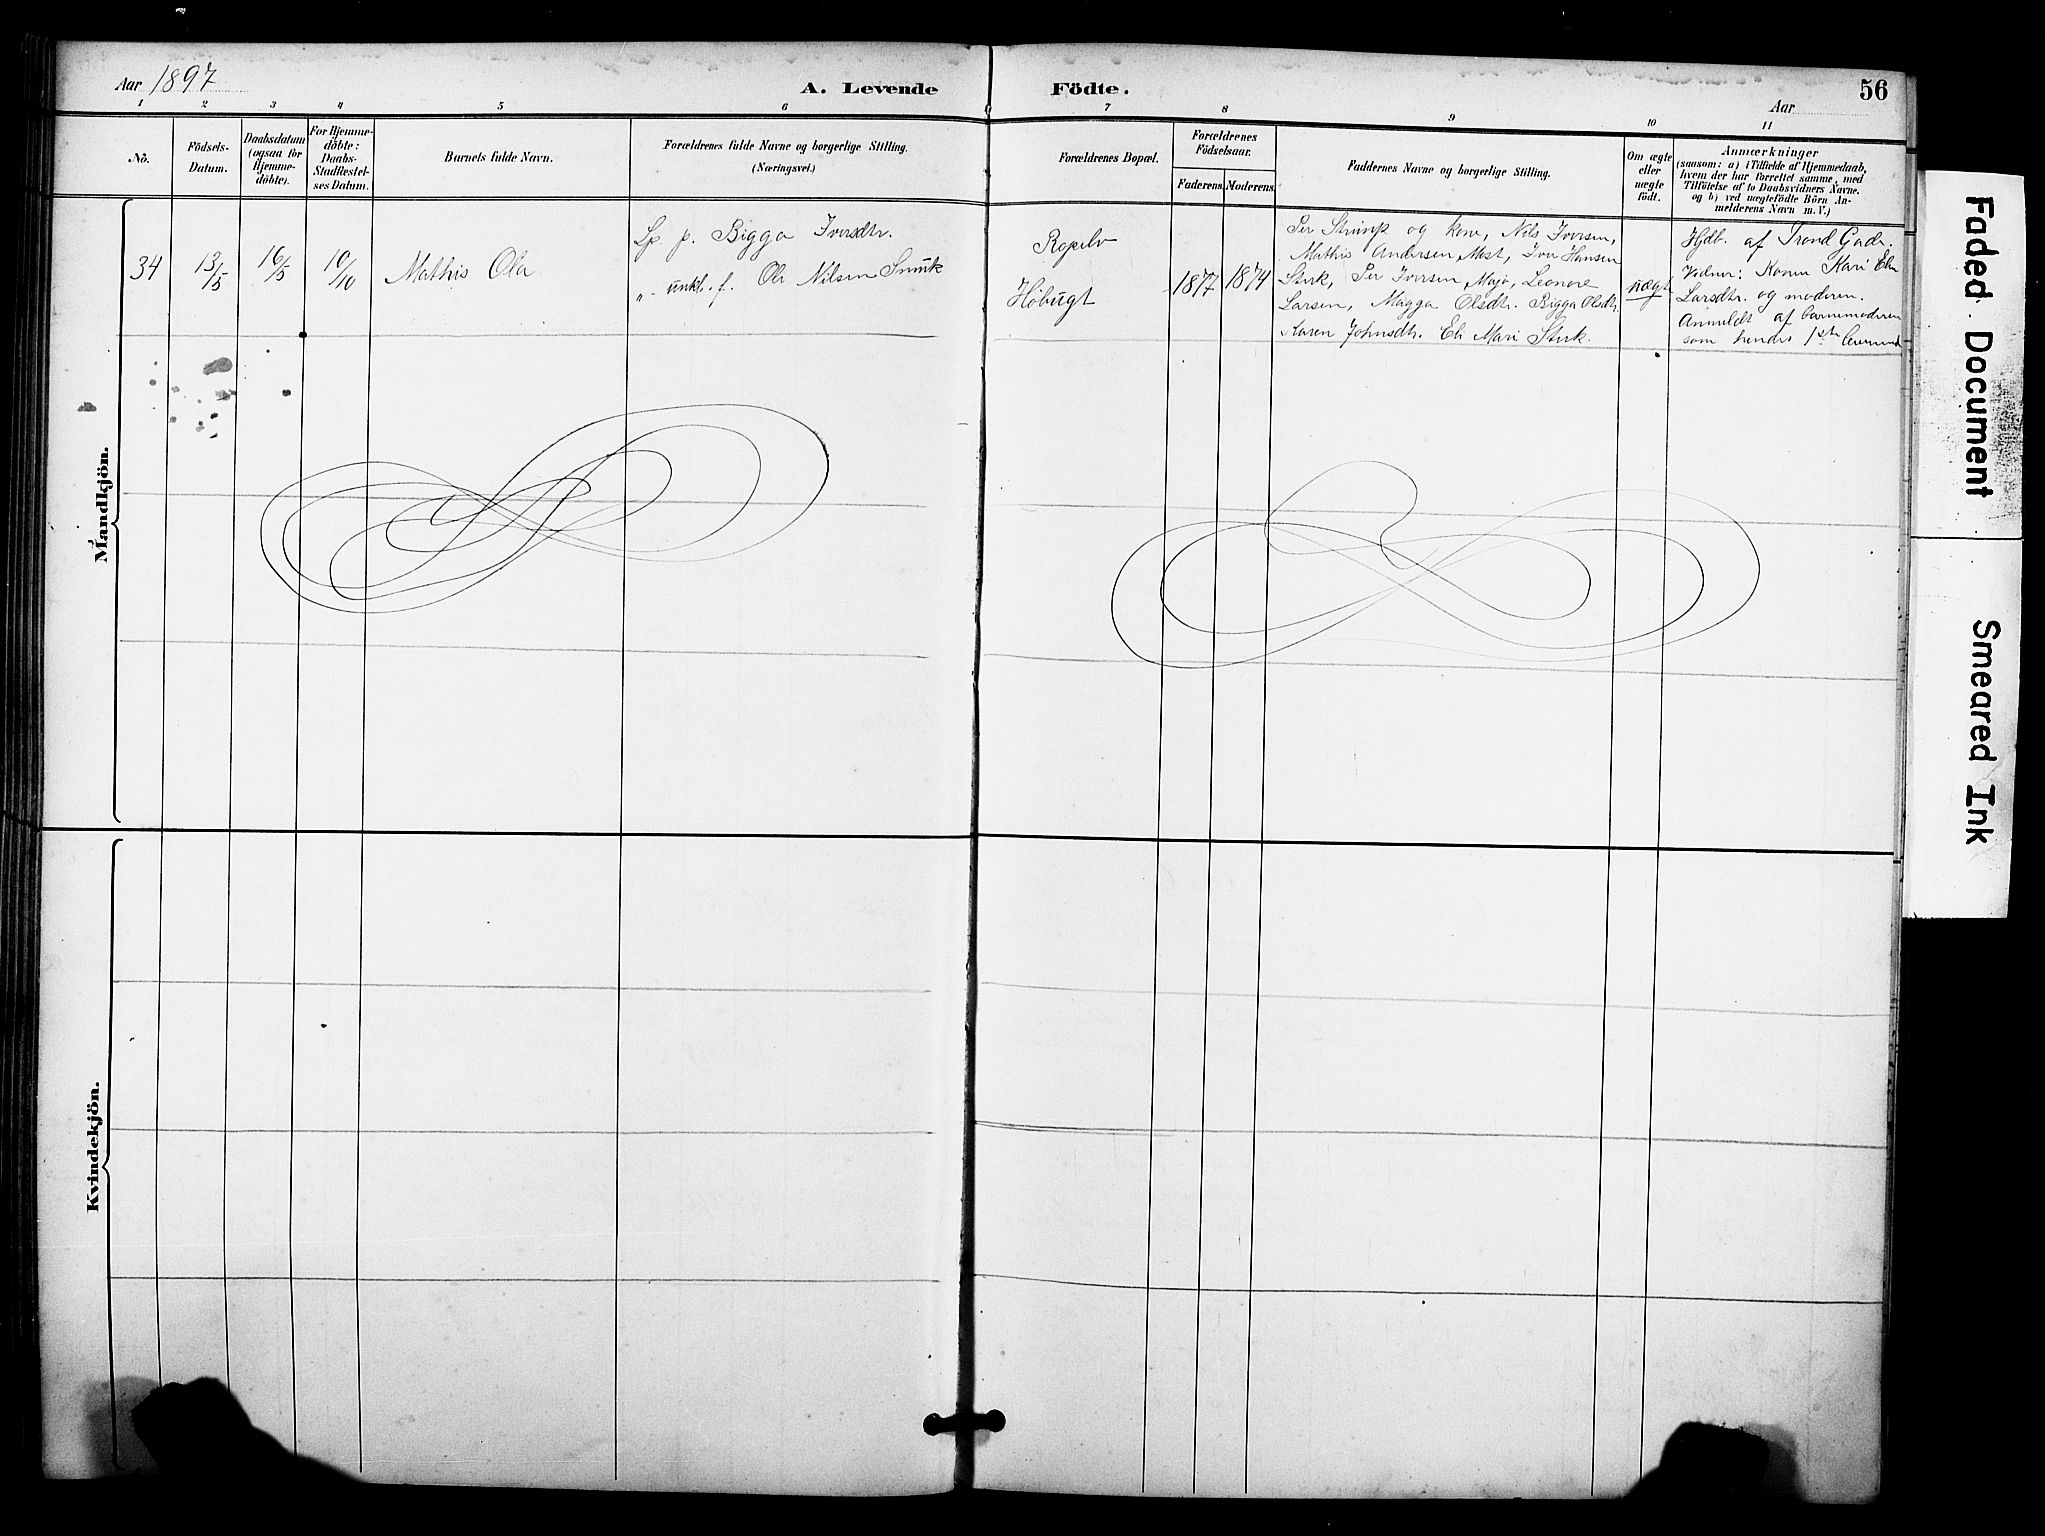 Aar 1897
A. Levende
Födte.
Aar
56
1 2 3 4 5 6 7 8 9 10 11
No.
Födsels-
Datum.
Daabsdatum
(ogsaa for
Hjemme-
döbte).
For Hjemme-
döbte:
Daabs-
Stadfæstel-
ses Datum.
Barnets fulde Navn.
Forældrenes fulde Navne og borgerlige Stilling.
(Næringsvei.)
Forældrenes Bopæl.
Forældrenes
Födselsaar.
Faderens.
Moderens.
Faddernes Navne og borgerlige Stilling.
Om ægte
eller
uægte
födt.
Anmærkninger
(saasom: a) i Tilfælde af Hjemmedaab,
hvem der har forrettet samme, med
Tilföielse af to Daabsvidners Navne.
og b) ved uægtefödte Börn An-
melderens Navn m.V.)
Mandkjön.
34
13/5
16/5
10/10
Mathis Ola
Lp. p. Bigga Iversdtr.
" unkl. f. Ole Nilsen Smuk
Ropelv
Höbugt
1877
1874
Per Strimp og kone, Nils Iversen,
Mathis Andersen Mst, Iver Hansen
Stirk, Per Iversen Maja, Leonore
Larsen, Magga Olsdtr. Bigga Olsdtr.
Karen Johnsdtr. Eli Mari Stirk.
uægt
Hjdb. af Trond Gade.
Vidner: Konen Kari Elen
Larsdtr. og moderen.
Anmeldt af barnemoderen
som hendes 1ste
Kvindekjön.
Faded Document
Smeared Ink